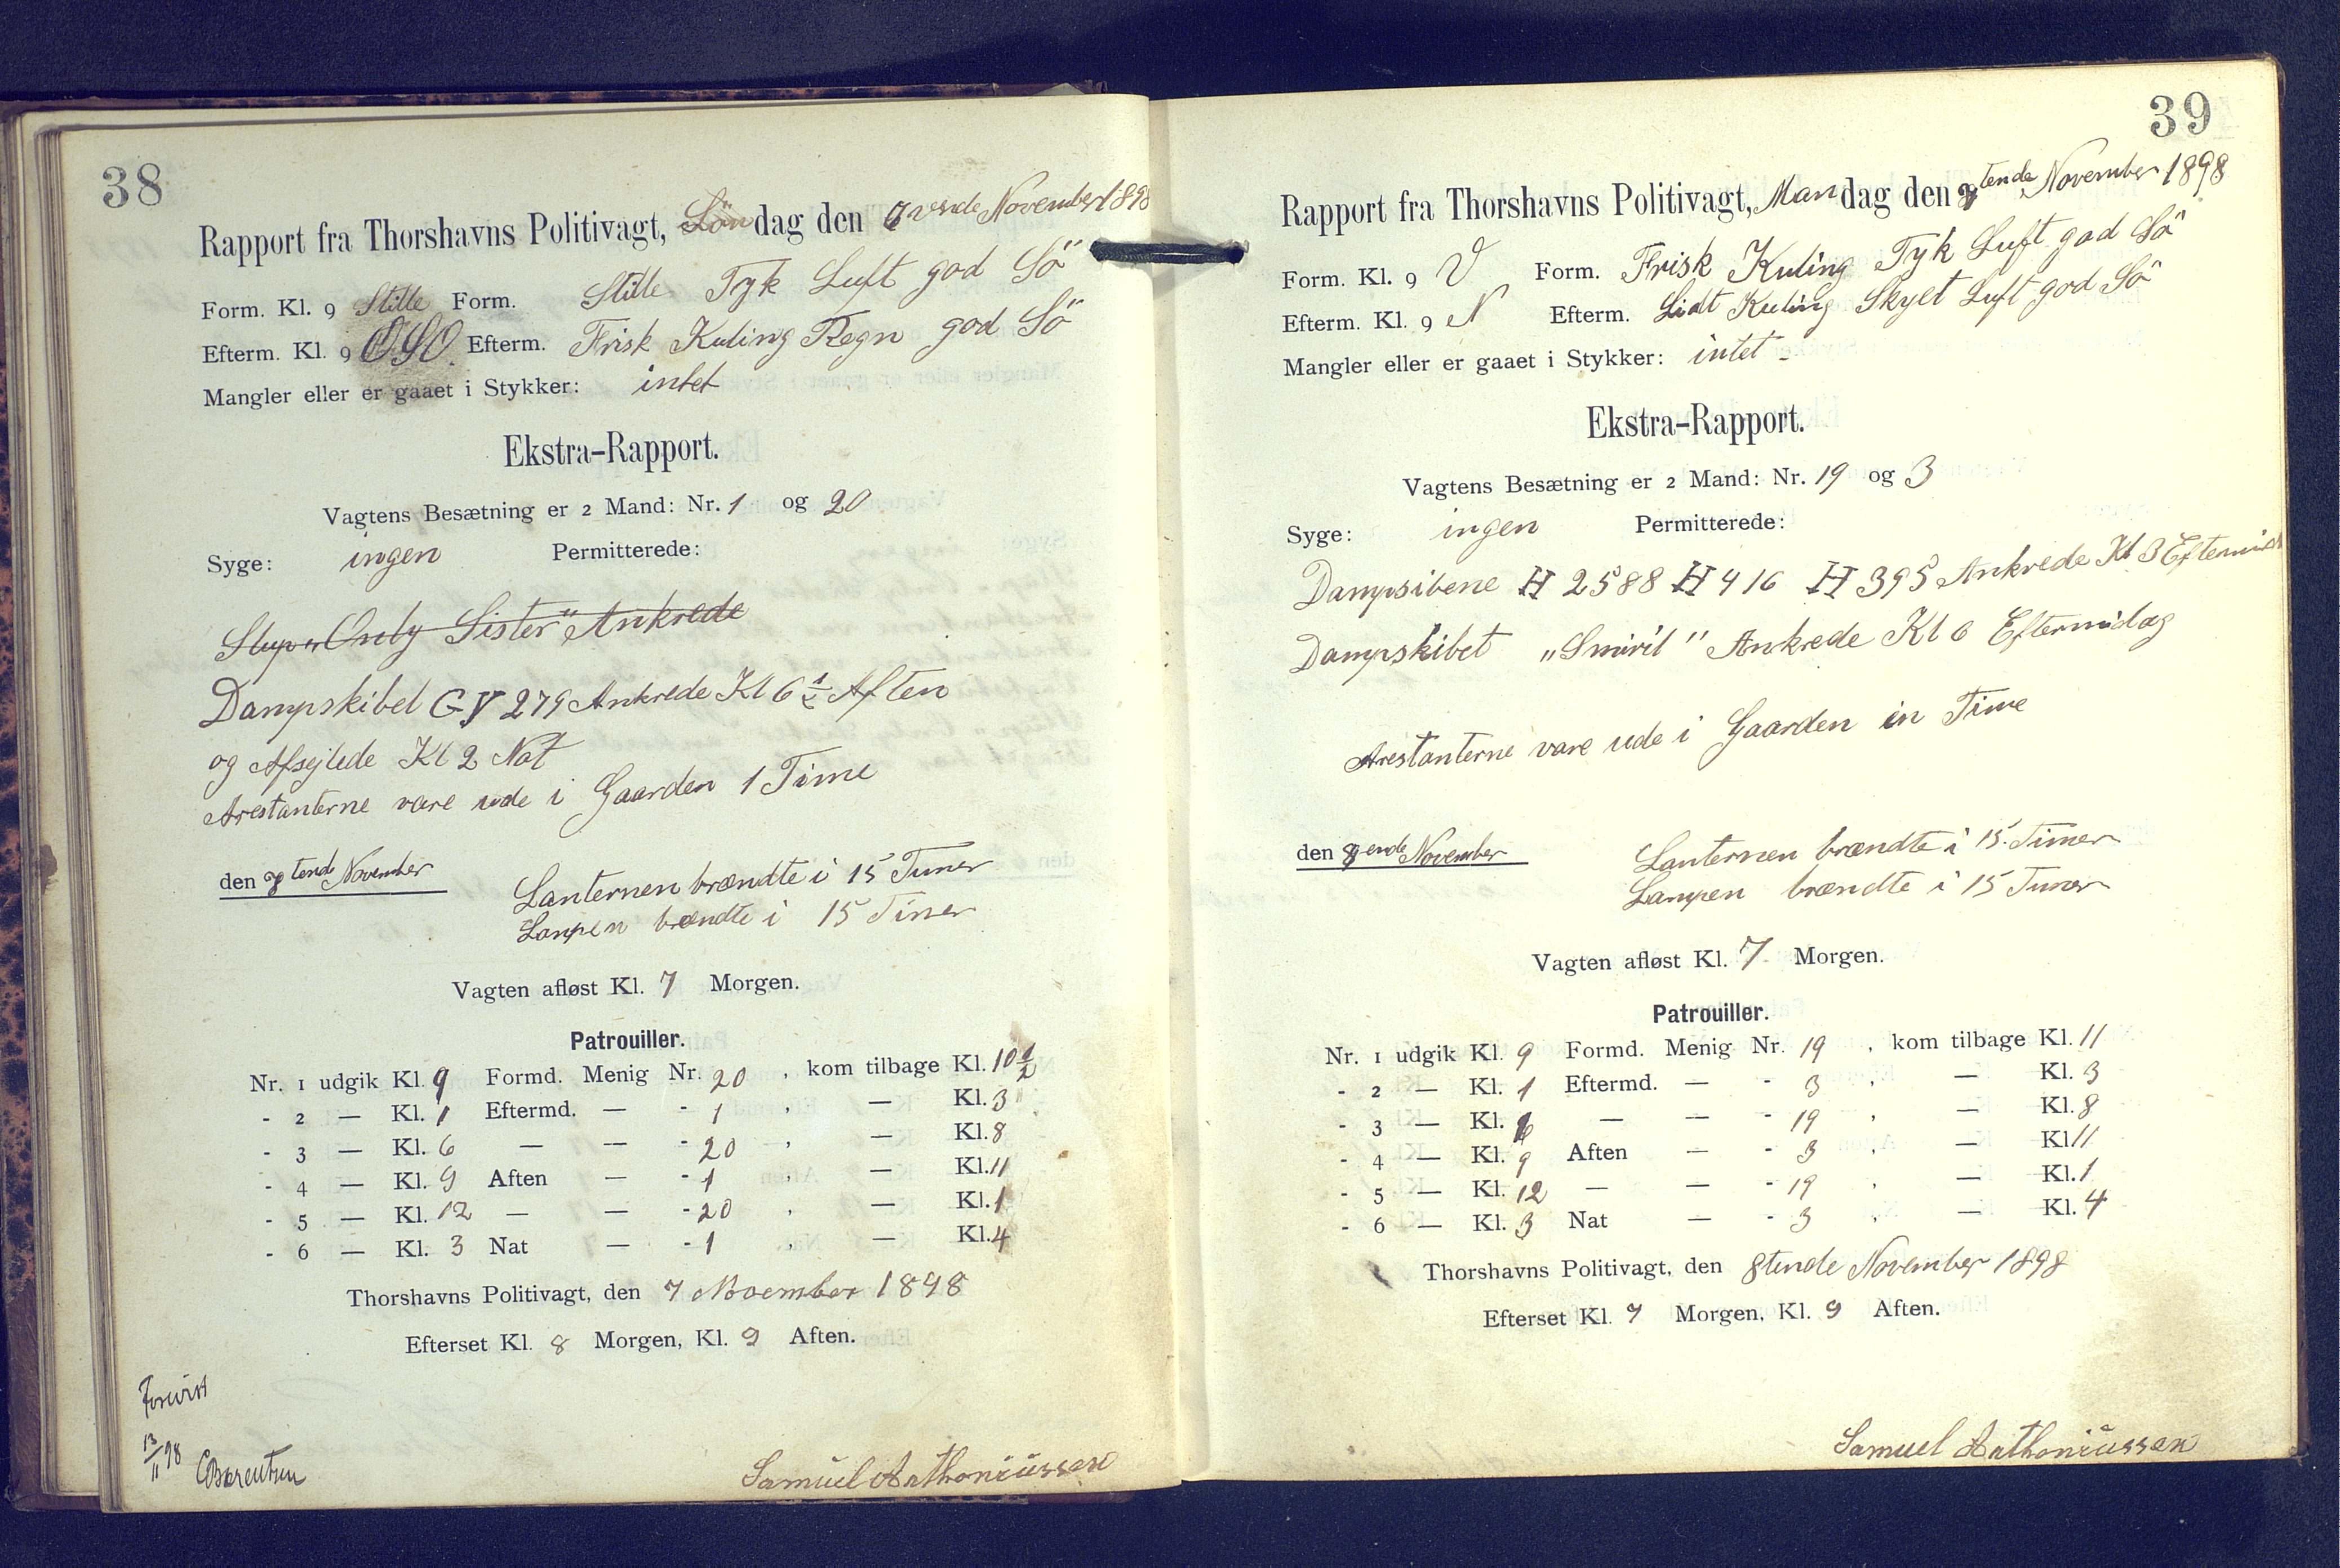 38
Rapport fra Thorshavns Politivagt, Søndag den 6 vende November 1898
Form. Kl. 9 Stille Form. Stille Tyk Luft god Sö
Efterm. Kl. 9 OSO Efterm. Frisk Kuling Regn god Sö
Mangler eller er gaaet i Stykker: intet
Ekstra-Rapport.
Vagtens Besætning er 2 Mand: Nr. 1 og 20
Syge: ingen Permitterede:
Slup „Only Sister" Ankrede
Dampskibet GY 279 Ankrede Kl 6 1/2 Aften
og Afsejlede Kl 2 Nat
Arestanterne vare ude i Gaarden 1 Time
den 7 tende November
Lanternen brændte i 15 Timer
Lampen brændte i 15 Timer
Vagten afløst Kl. 7 Morgen.
Patrouiller.
Nr. 1 udgik Kl. 9 Formd. Menig Nr. 20 , kom tilbage Kl. 10 1/2
- 2 — Kl. 1 Eftermd. — - 1 , — Kl. 3
- 3 — Kl. 6 — — - 20 , — Kl. 8
- 4 — Kl. 9 Aften — - 1 , — Kl. 11
- 5 — Kl. 12 — — - 20 , — Kl. 1
- 6 — Kl. 3 Nat — - 1 , — Kl. 4
Thorshavns Politivagt, den 7 November 1898
Efterset Kl. 8 Morgen, Kl. 9 Aften.
Forevist
13/11 98
CBærentsen
Samuel Anthoniussen
39
Rapport fra Thorshavns Politivagt, Mandag den 7 tende November 1898
Form. Kl. 9 V Form. Frisk Kuling Tyk Luft god Sö
Efterm. Kl. 9 N Efterm. Lidt Kuling Skyet Luft god Sö
Mangler eller er gaaet i Stykker: intet -
Ekstra-Rapport.
Vagtens Besætning er 2 Mand: Nr. 19 og 3
Syge: ingen Permitterede:
Dampsibene H 2588 H 416 H 395 Ankrede Kl 3 Eftermid
Dampskibet „Smiril" Ankrede Kl 6 Eftermidag
Arestanterne vare ude i Gaarden in Time
den 8 ende November
Lanternen brændte i 15 Timer
Lampen brændte i 15 Timer
Vagten afløst Kl. 7 Morgen.
Patrouiller.
Nr. 1 udgik Kl. 9 Formd. Menig Nr. 19 , kom tilbage Kl. 11
- 2 — Kl. 1 Eftermd. — - 3 , — Kl. 3
- 3 — Kl. 6 — — - 19 , — Kl. 8
- 4 — Kl. 9 Aften — - 3 , — Kl. 11
- 5 — Kl. 12 — — - 19 , — Kl. 1
- 6 — Kl. 3 Nat — - 3 , — Kl. 4
Thorshavns Politivagt, den 8tende November 1898
Efterset Kl. 7 Morgen, Kl. 9 Aften.
Samuel Anthoniussen